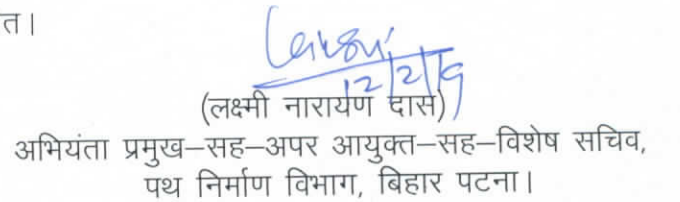 त।
Laxmi
12/2/19
(लक्ष्मी नारायण दास)
अभियंता प्रमुख–सह–अपर आयुक्त–सह–विशेष सचिव,
पथ निर्माण विभाग, बिहार पटना।